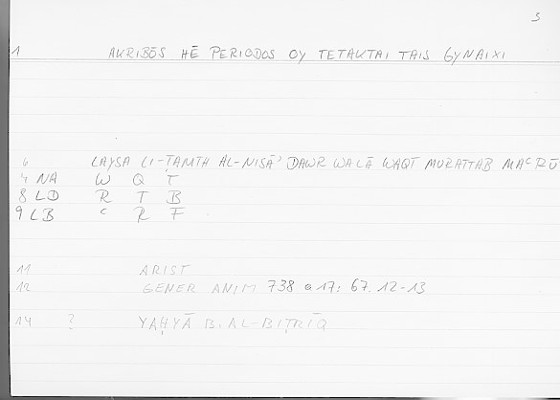 3
1 AKRIBŌS HĒ PERIODOS OY TETAKTAI TAIS GYNAIXI
6 LAYSA LI-ṬAMTH AL-NISĀʾ DAWR WALĀ WAQT MURATTAB MAʿRŪ
7 NA W Q T
8 LD R T B
9 LB ʿ R F
11 ARIST
12 GENER ANIM 738 a 17: 67. 12-13
14 ? YAḤYĀ B. AL-BIṬRĪQ